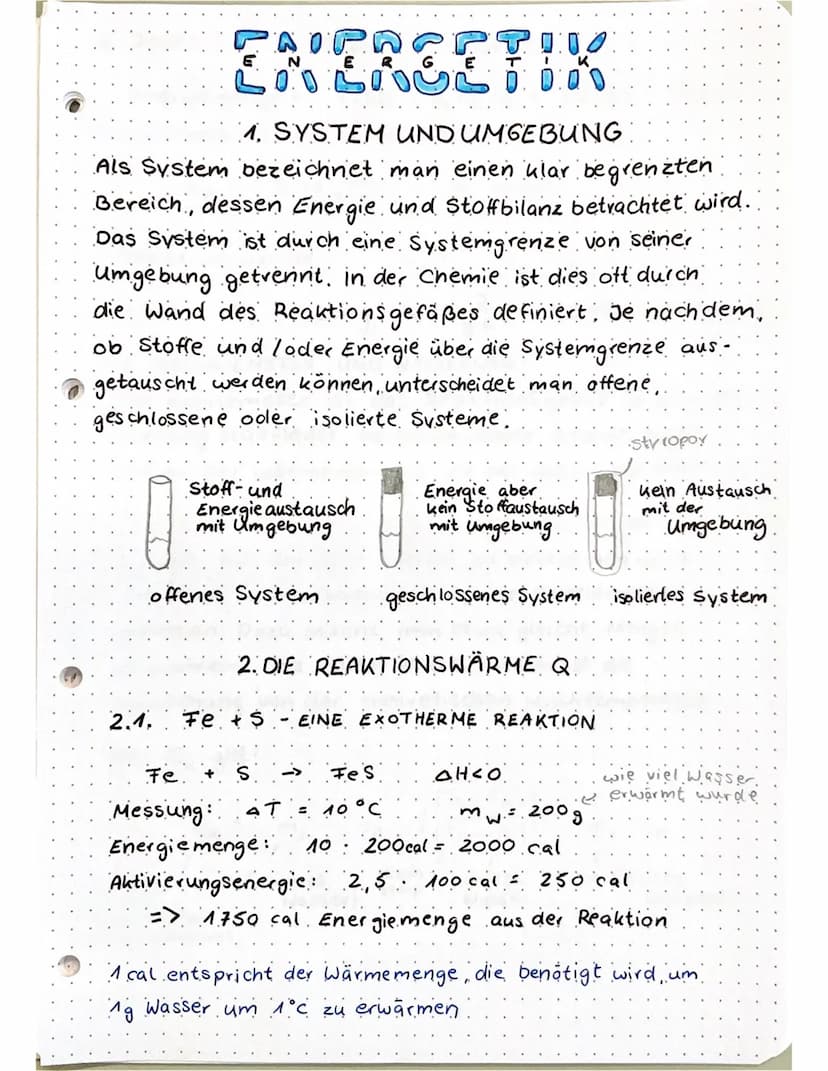 ENERGETIK
ENERGETIK
1. SYSTEM UND UMGEBUNG
Als System bezeichnet man einen klar begrenzten
Bereich, dessen Energie und Stoffbilanz betrachtet wird.
Das System ist durch eine Systemgrenze von seiner
Umgebung getrennt. in der Chemie ist dies oft durch
die Wand des Reaktionsgefäßes definiert. Je nachdem,
ob Stoffe und /oder Energie über die Systemgrenze aus-
getauscht werden können, unterscheidet man offene,
geschlossene oder isolierte Systeme.
styropor
Stoff- und
Energieaustausch
mit Umgebung
Energie aber
kein Stoffaustausch
mit Umgebung
kein Austausch
mit der
Umgebung
offenes System
geschlossenes System
isoliertes System
2. DIE REAKTIONSWÄRME Q
2.1. Fe + S - EINE EXOTHERME REAKTION
Fe + S → FeS ΔH<0
wie viel Wasser
erwärmt wurde
Messung: ΔT = 10°C mw = 200g
Energiemenge: 10 · 200cal = 2000 cal
Aktivierungsenergie: 2,5 · 100 cal = 250 cal
=> 1750 cal Energiemenge aus der Reaktion
1 cal entspricht der Wärmemenge, die benötigt wird, um
1g Wasser um 1°C zu erwärmen